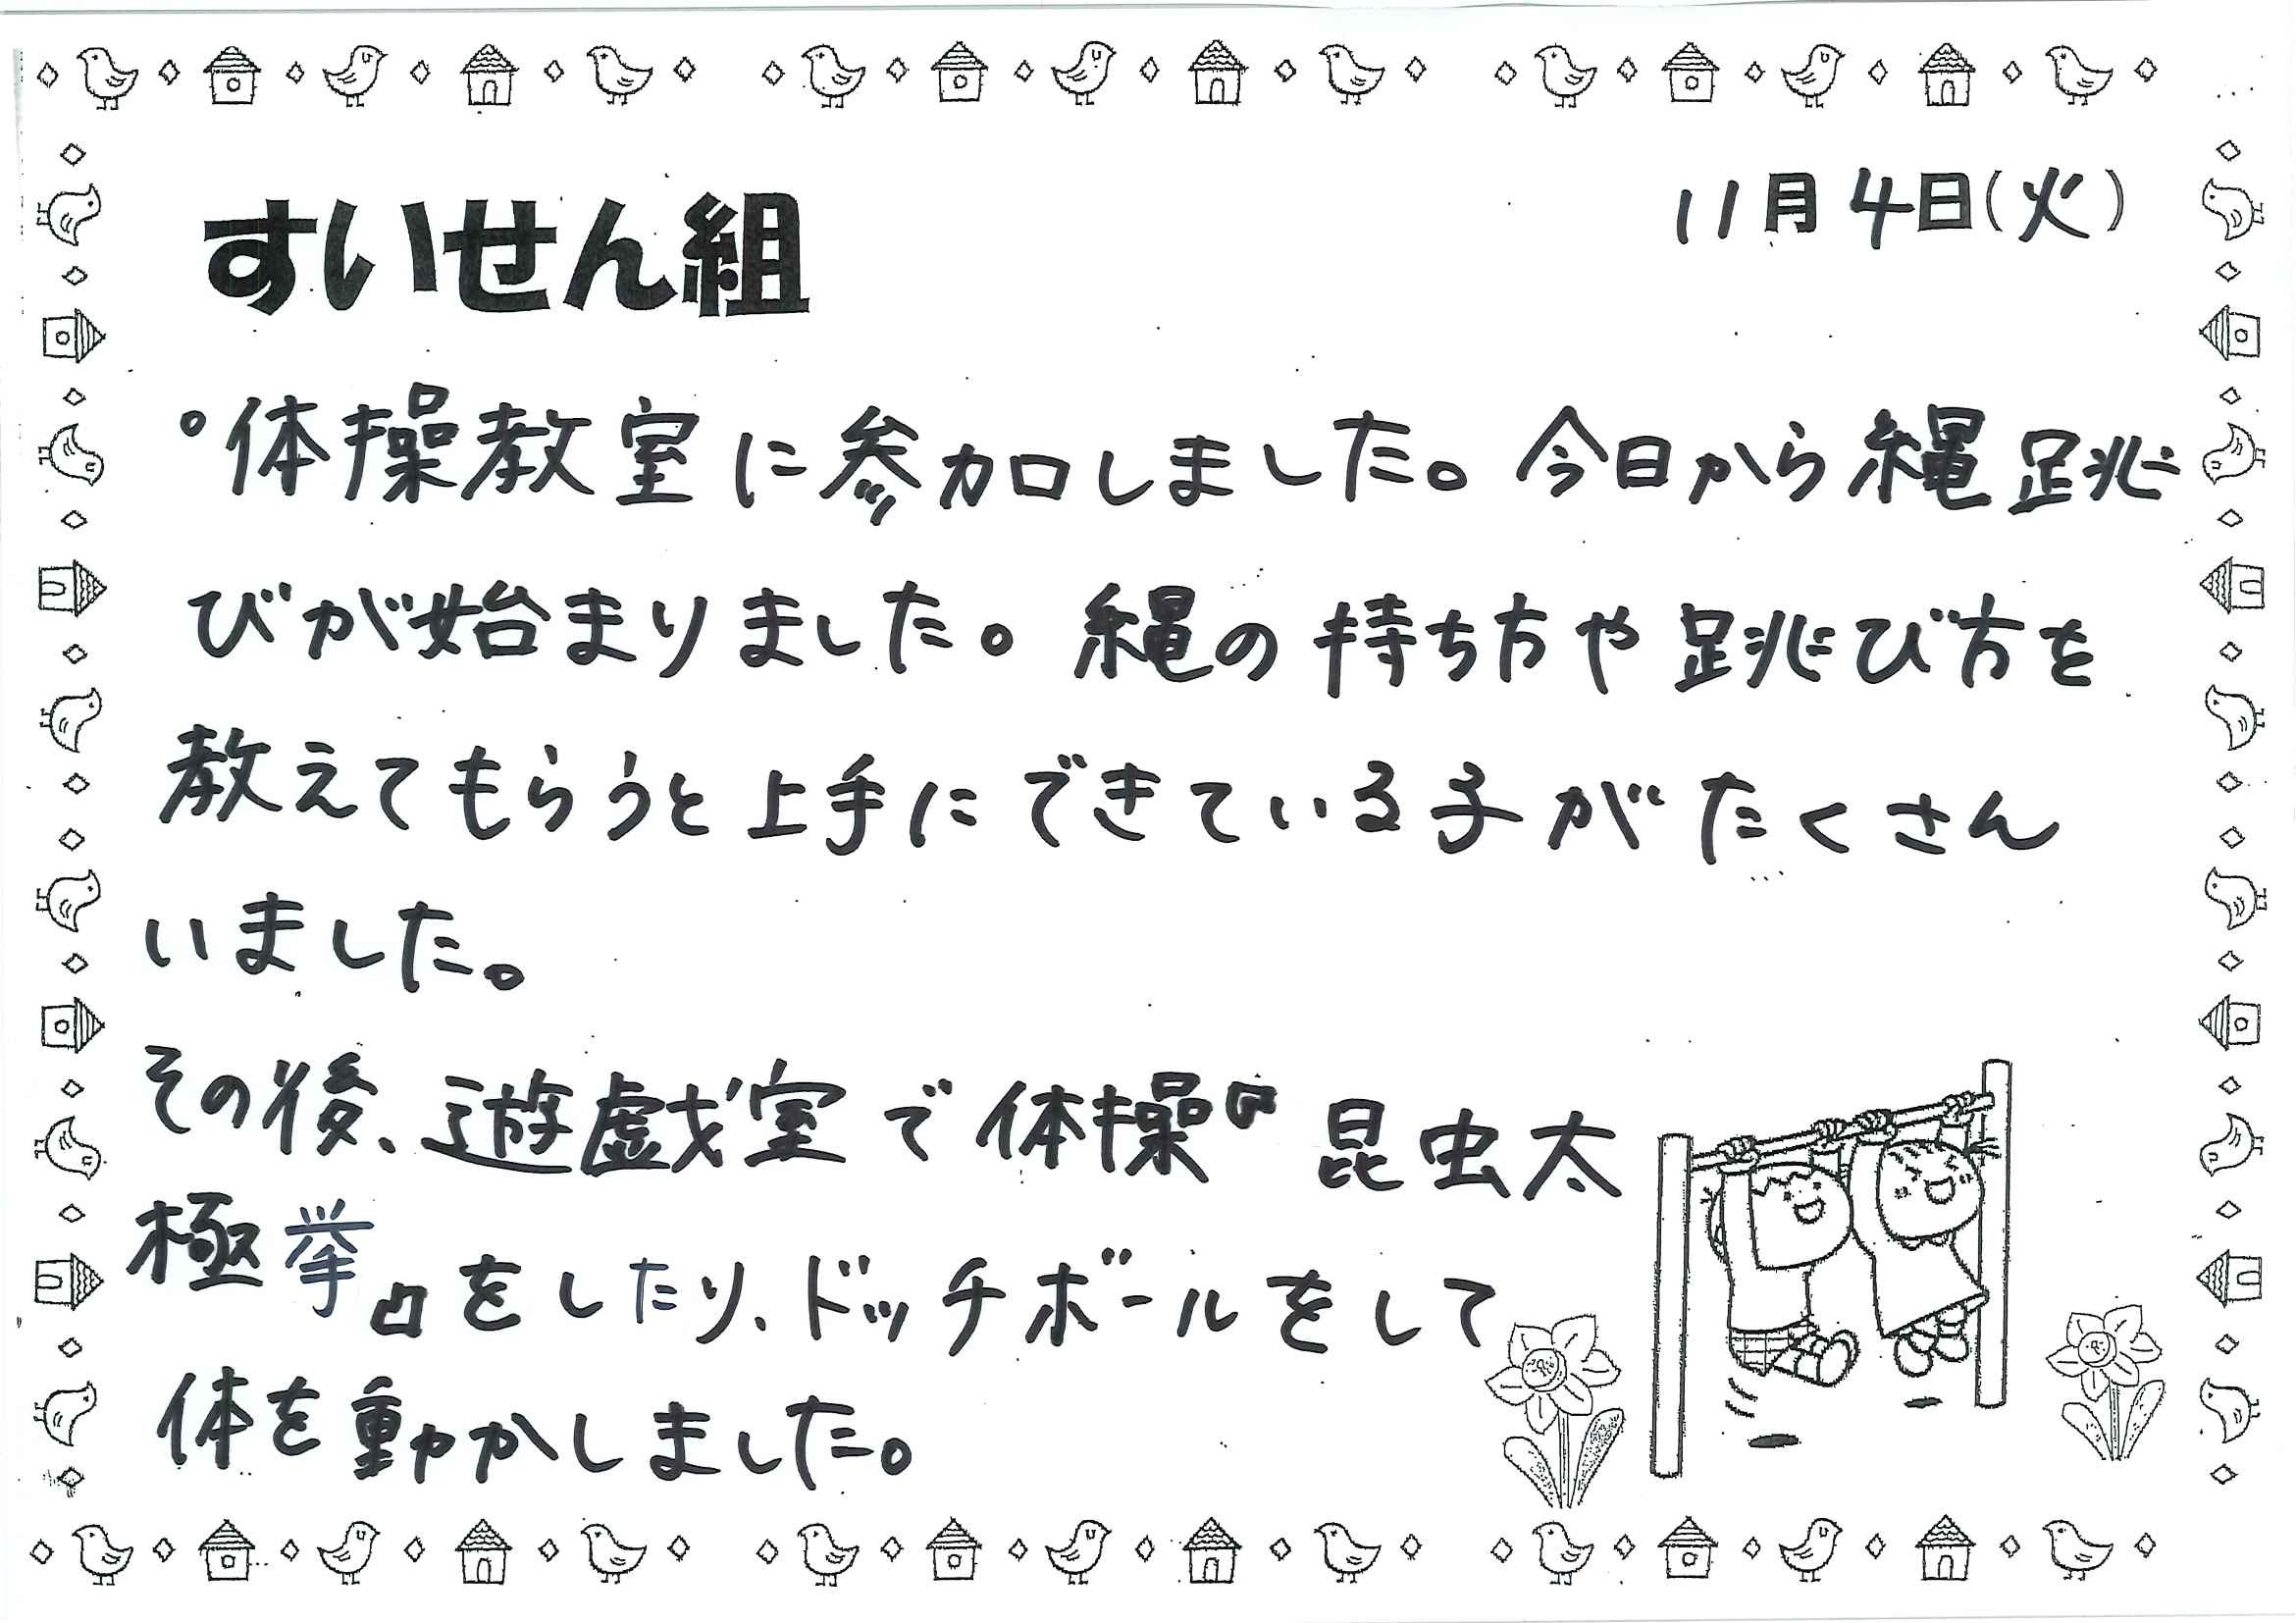 すいせん組
11月4日(火)
°体操教室に参加しました。今日から縄跳
びが始まりました。縄の持ち方や跳び方を
教えてもらうと上手にできている子がたくさん
いました。
その後、遊戯室で体操『昆虫太
極挙』をしたり、ドッチボールをして
体を動かしました。